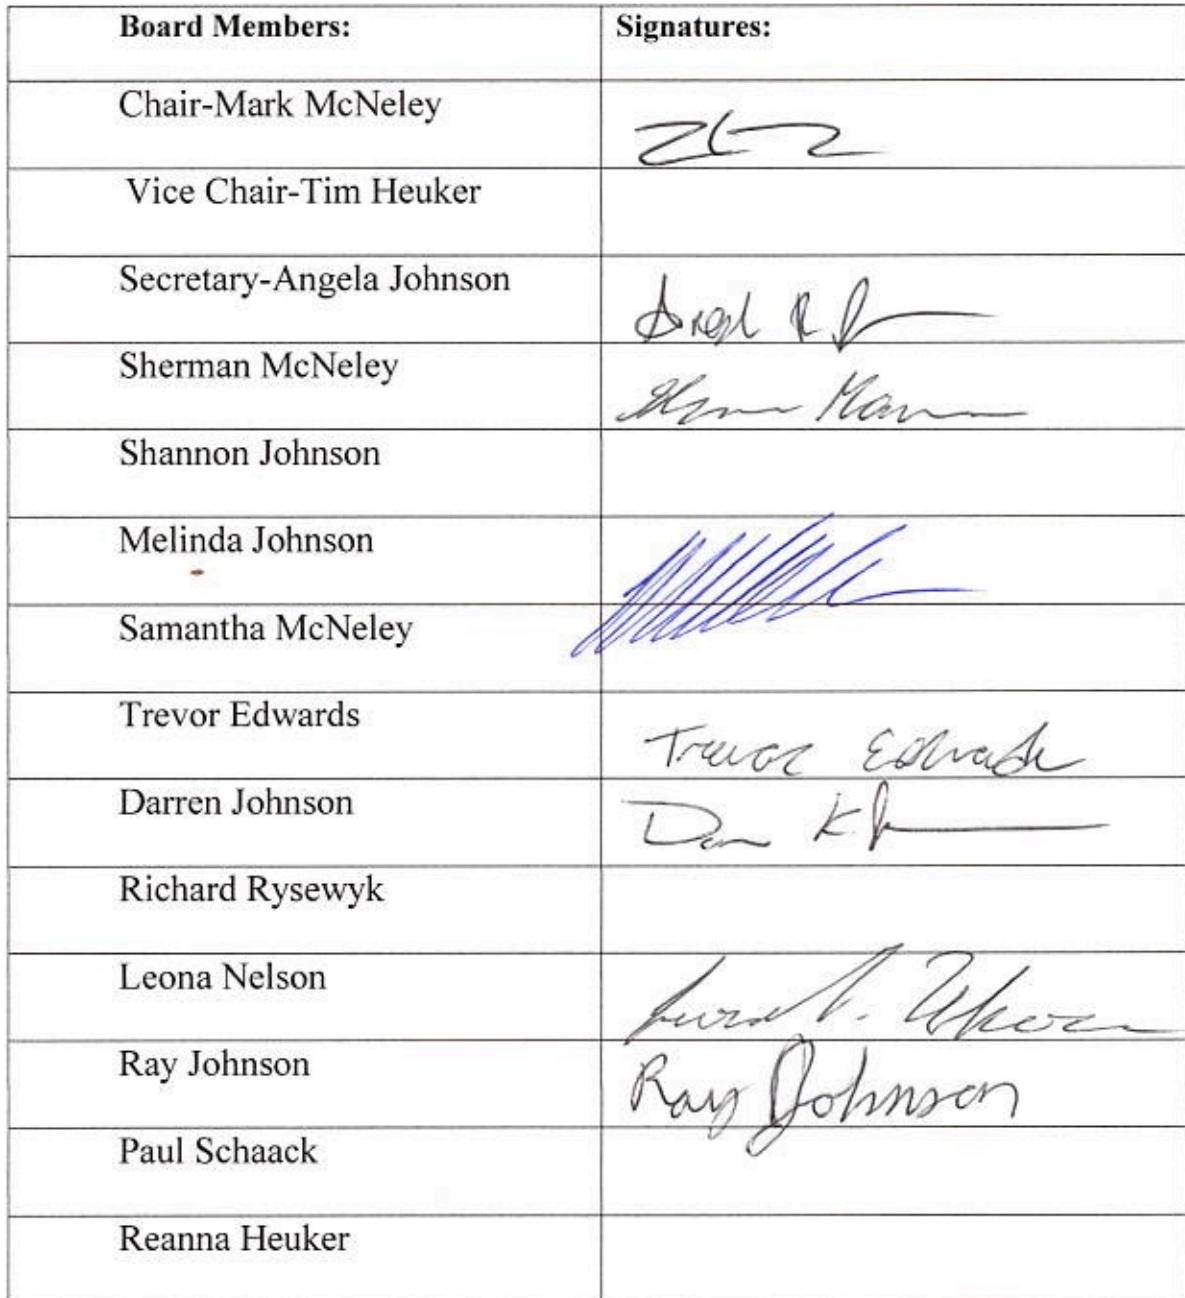 Board Members: Signatures:
Chair-Mark McNeley
Vice Chair-Tim Heuker
Secretary-Angela Johnson
Sherman McNeley
Shannon Johnson
Melinda Johnson
Samantha McNeley
Trevor Edwards Trevor Edwards
Darren Johnson
Richard Rysewyk
Leona Nelson
Ray Johnson Ray Johnson
Paul Schaack
Reanna Heuker